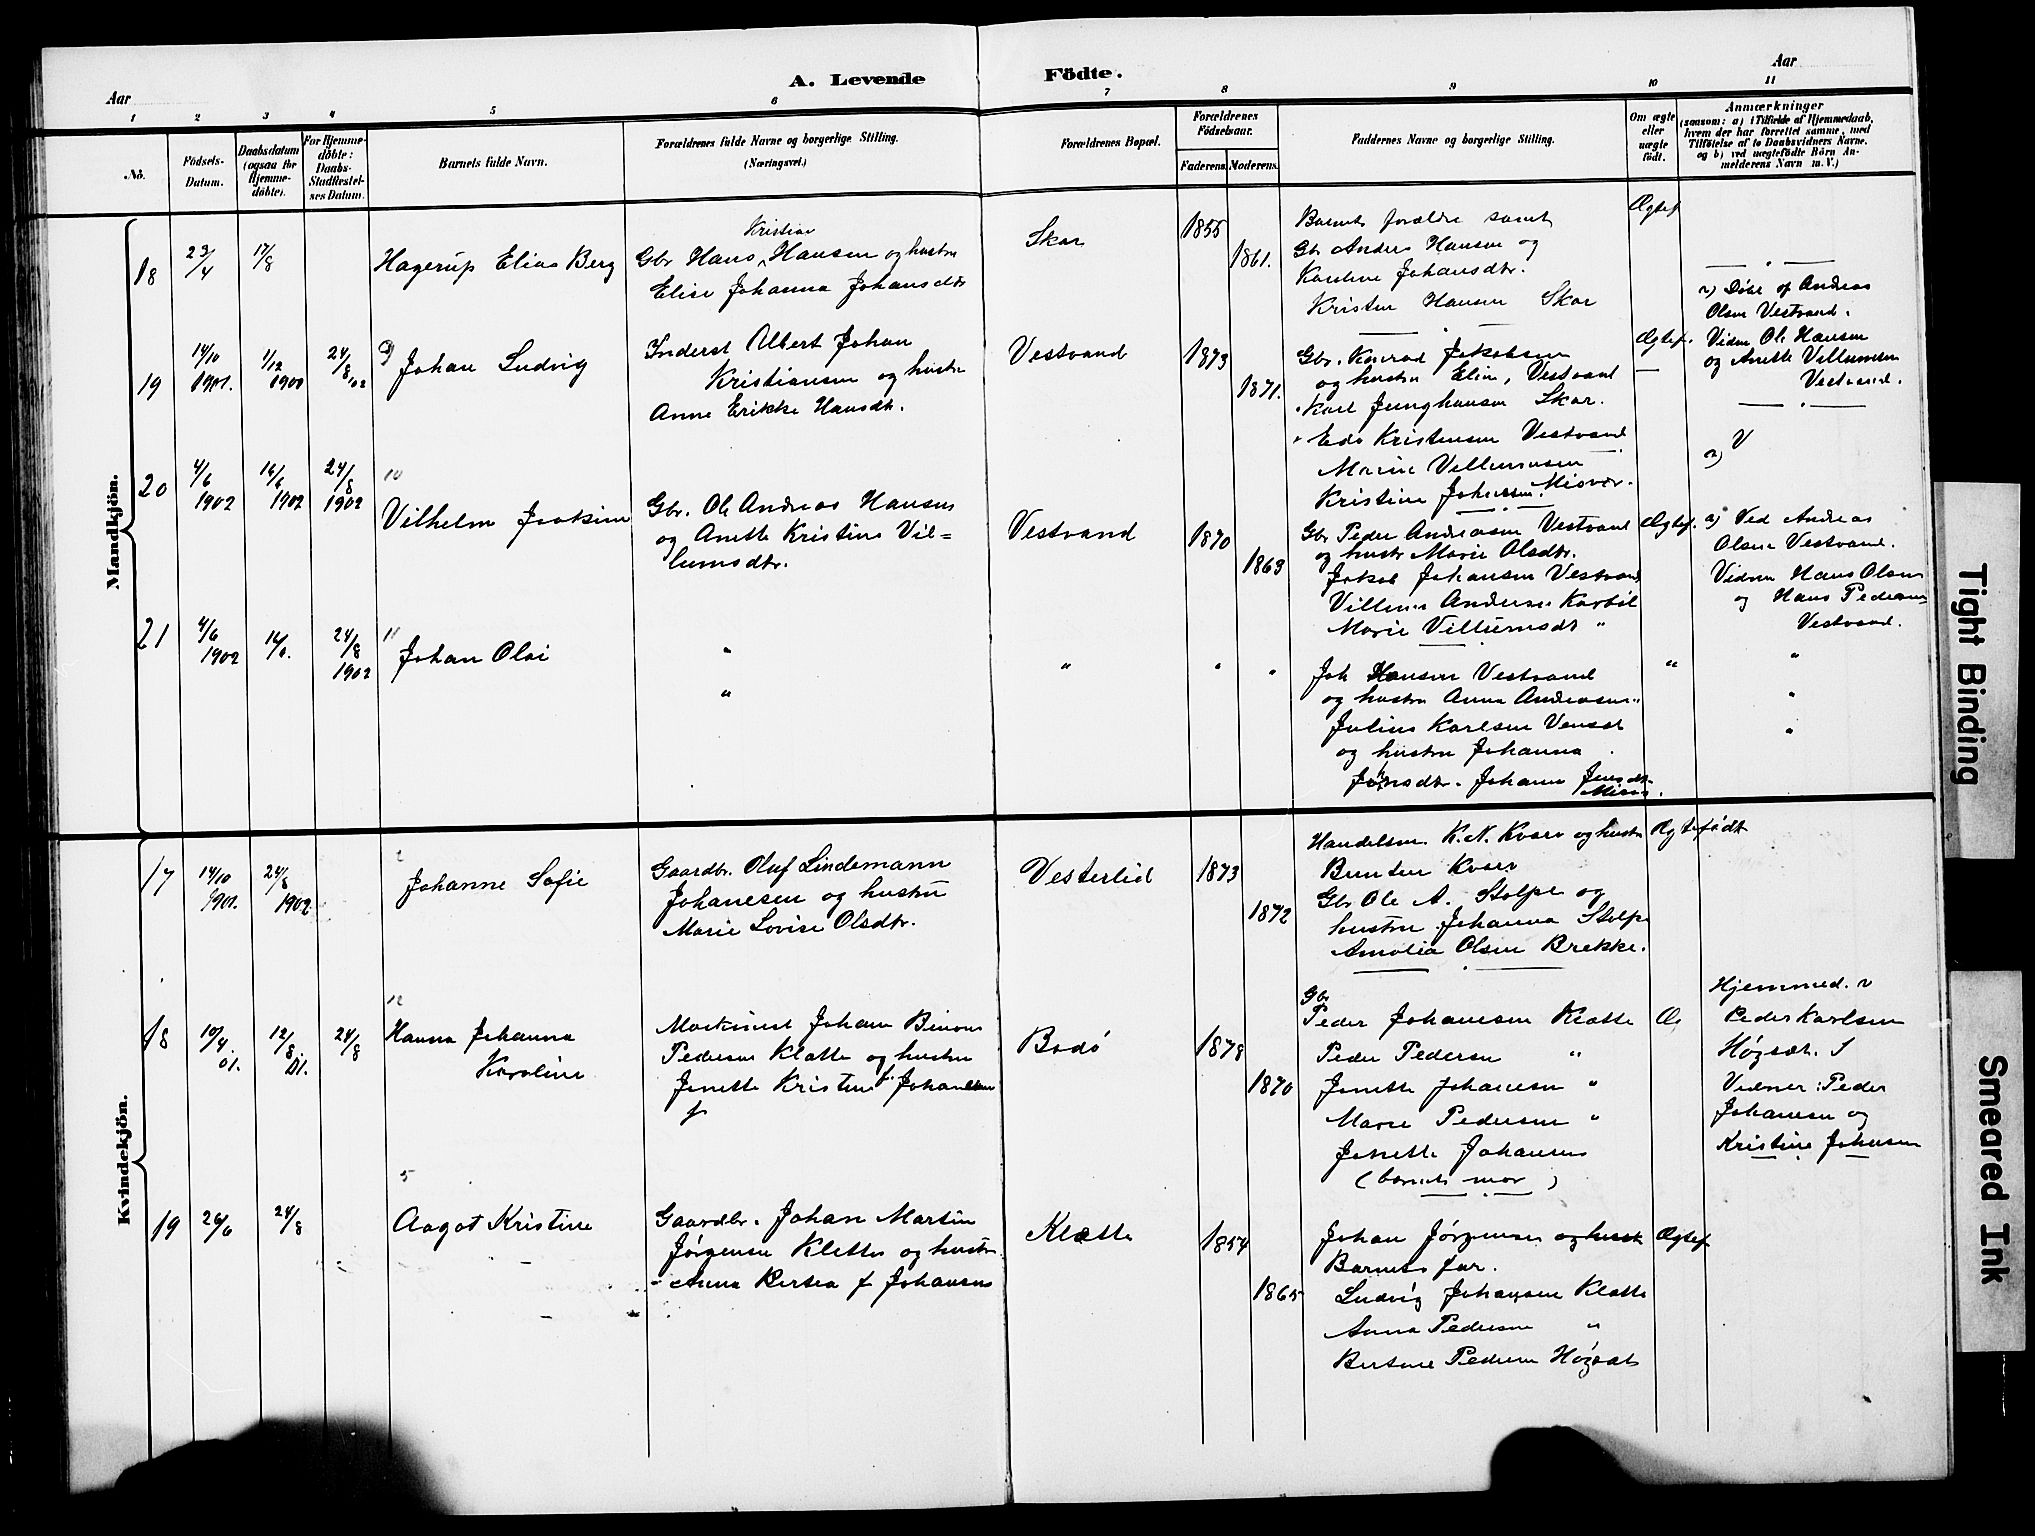 A. Levende Födte.
Aar
Aar
1 2 3 4 5 6 7 8 9 10 11
No.
Födsels-Datum.
Daabsdatum (ogsaa for Hjemme-döbte).
For Hjemme-döbte: Daabs-Stadfæstel-ses Datum.
Barnets fulde Navn.
Forældrenes fulde Navne og borgerlige Stilling.
(Næringsvei.)
Forældrenes Bopæl.
Forældrenes Födselsaar.
Faderens. Moderens.
Faddernes Navne og borgerlige Stilling.
Om ægte eller uægte födt.
Anmærkninger
(saasom: a) i Tilfælde af Hjemmedaab,
hvem der har forrettet samme, med
Tilföielse af to Daabsvidners Navne,
og b) ved uægtefödte Börn An-
melderens Navn m. V.)
Mandkjön.
18 23/4 17/8
Hagerup Elias Berg
Kristian
Gbr Hans Hansen og hustru
Elise Johanna Johansdtr
Skar
1855
1861.
Barnets forældre samt
Gbr Anders Hansen og
Karoline Johansdtr.
Kristen Hansen Skar
Ægtef
19 14/10 1901. 1/12 1900 24/8 02
9)
Johan Ludvig
Inderst Albert Johan
Kristiansen og hustru
Anne Erikke Hansdtr.
Vestvand
1873
1871.
Gbr. Konrad Jakobsen
og hustru Elin, Vestvand
Karl Junghansen Skar.
" Kristensen Vestvand
Marie Villumsen
Kristine Johansen Misvær.
Ægtef.
a) Döbt af Andreas
Olsen Vestvand.
Vidne Ole Hansen
og Anette Villumsen
Vestvand.
a)
20 4/6 1902 16/6 1902 24/8 1902
10
Vilhelm Joakim
Gbr. Ole Andreas Hansen
og Anette Kristine Vil=
lumsdtr.
Vestvand
1870
1863
Gbr Peder Andreasen Vestvand
og hustr Marie Olsdtr.
Jakob Johansen Vestvand
Villum Andersen Karbøl
Marie Villumsdt "
Ægtef.
a) Ved Andreas
Olsen Vestvand.
Vidner Hans Olsen
og Hans Pedersen
Vestvand.
21 4/6 1902 16/6. 24/8 1902
11
Johan Olai
"
"
" " "
Joh Hansen Vestvand
og hustru Anna Andreasen
Julius Karlsen Vensæt
og hustru Johanna
Jonsdtr. Johanna Jensdtr.
Misvær.
"
"
"
"
Kvindekjön.
17 14/10 1901. 24/8 1902
2
Johanne Sofie
Gaardbr. Oluf Lindemann
Johanesen og hustru
Marie Lovise Olsdtr.
Vesterlid
1873
1872
Handelsm. K. N. Kvær og hustru
Bentine Kvær
Gbr Ole A. Stolpe og
hustru Johanna Stolpe
Amalia Olsen Brekke.
Ægtefødt
18 10/4 01. 12/8 01. 24/8
12
Hanna Johanna
Karoline
Maskinist Johan
Pedersen Klætte og hustru
Jenette Kristine f. Johansen
Bodø
1878
1870
Gbr
Peder Johanesen Klætte
Peder Pedersen "
Jenette Johanesen "
Marie Pedersen "
Jenette Johansen
(barnets mor)
Æ
Hjemmed. v
Peder Karlsen
Høgsæt.
Vidner: Peder
Johanesen og
Kristine Johansen
19 26/6 24/8
5
Aagot Kristine
Gaardbr. Johan Martin
Jørgensen Klette og hustru
Anna Bertea f Johansen
Klætte
1854
1865
Johan Jørgensen og hustr
Barnets far.
Ludvig Johansen Klætte
Anna Pedersen "
Bertine Pedersen Høgsæt
Ægtef
Tight Binding
Smeared Ink